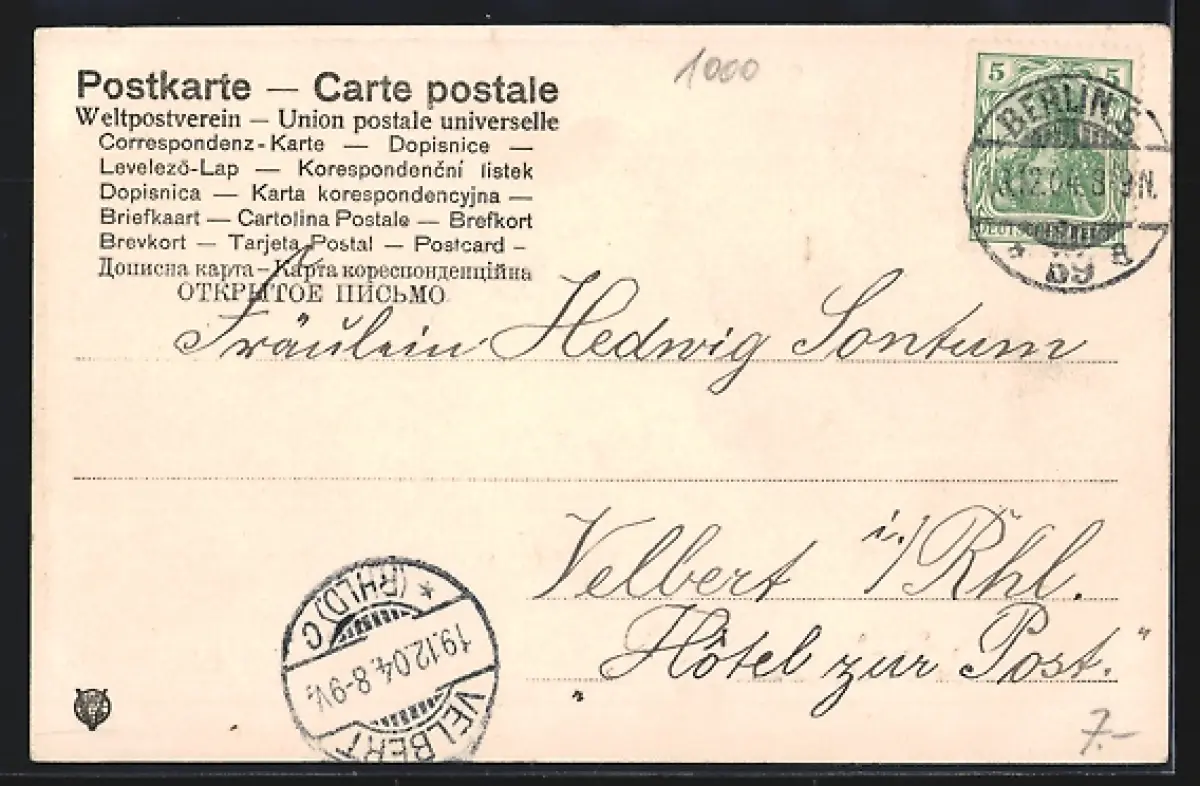 1000
Postkarte — Carte postale
Weltpostverein — Union postale universelle
Correspondenz-Karte — Dopisnice —
Levelező-Lap — Korespondenční listek
Dopisnica — Karta korespondencyjna —
Briefkaart — Cartolina Postale — Brefkort
Brevkort — Tarjeta Postal — Postcard —
Дописна карта — Карта кореспонденційна
ОТКРЫТОЕ ПИСЬМО
5 5
BERLIN.S.
12.04. 8-9N.
59 a
Fräulein Hedwig Sontum
Velbert i./Rhl.
„Hôtel zur Post."
* (RHLD) C
19.12.04. 8-9V.
VELBERT
7.-